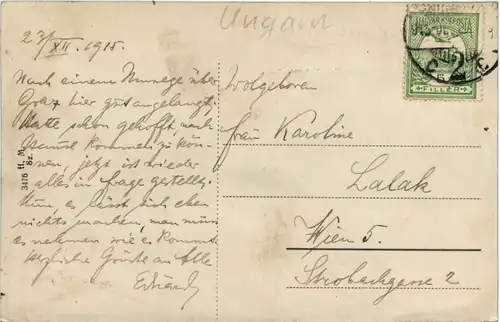 Ungarn
23/XII. 1915.
Nach einem Umwege über
Graz hier gut angelangt.
Hatte schon gehofft, nach
Hause kommen zu kön-
nen, jetzt ist wieder
alles in Frage gestellt.
Nun, es lässt sich eben
nichts machen, man muss
es nehmen wie es kommt.
Herzliche Grüße an Alle
Eduard
Wolgeboren
Frau Karoline
Lalak
Wien 5.
Strobachgasse 2
3476 H. M.
Sz.
MAGYAR KIR. POSTA
FILLER